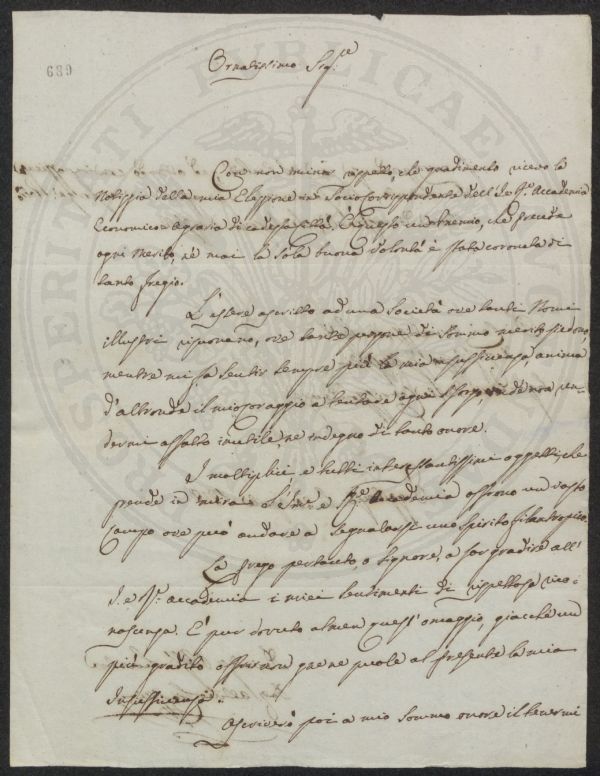 689
Ornatissimo Sig.re
Con non minor rispetto, che gradimento ricevo la
Notizia della mia Elezione in Socio corrispondente dell'I. e R. Accademia
Economico-Agraria di codesta Città. Questo è un Premio, che precede
ogni merito, nè mai la sola buona volontà è stata coronata di
tanto fregio.
L'essere ascritto ad una Società ove tanti Nomi
illustri risuonano, ove tante persone di sommo merito siedono,
mentre mi fa sentir sempre più la mia insufficienza, anima
d'altronde il mio coraggio a tentare ogni sforzo, onde non ren-
dermi affatto inutile, ne indegno di tanto onore.
I moltiplici e tutti interessantissimi oggetti, che
prende in mira l'Im. e R. Accademia offrono un vasto
Campo ove può andare a segnalarsi uno spirito filantropico.
La prego pertanto, o Signore, a far gradire all'
I. e R. accademia i miei sentimenti di rispettosa rico-
noscenza. È pur dovuto almen quest'omaggio, giacchè un
più gradito offrir non gne ne puole al presente la mia
Insufficienza.
Ascriverò poi a mio sommo onore il tenermi